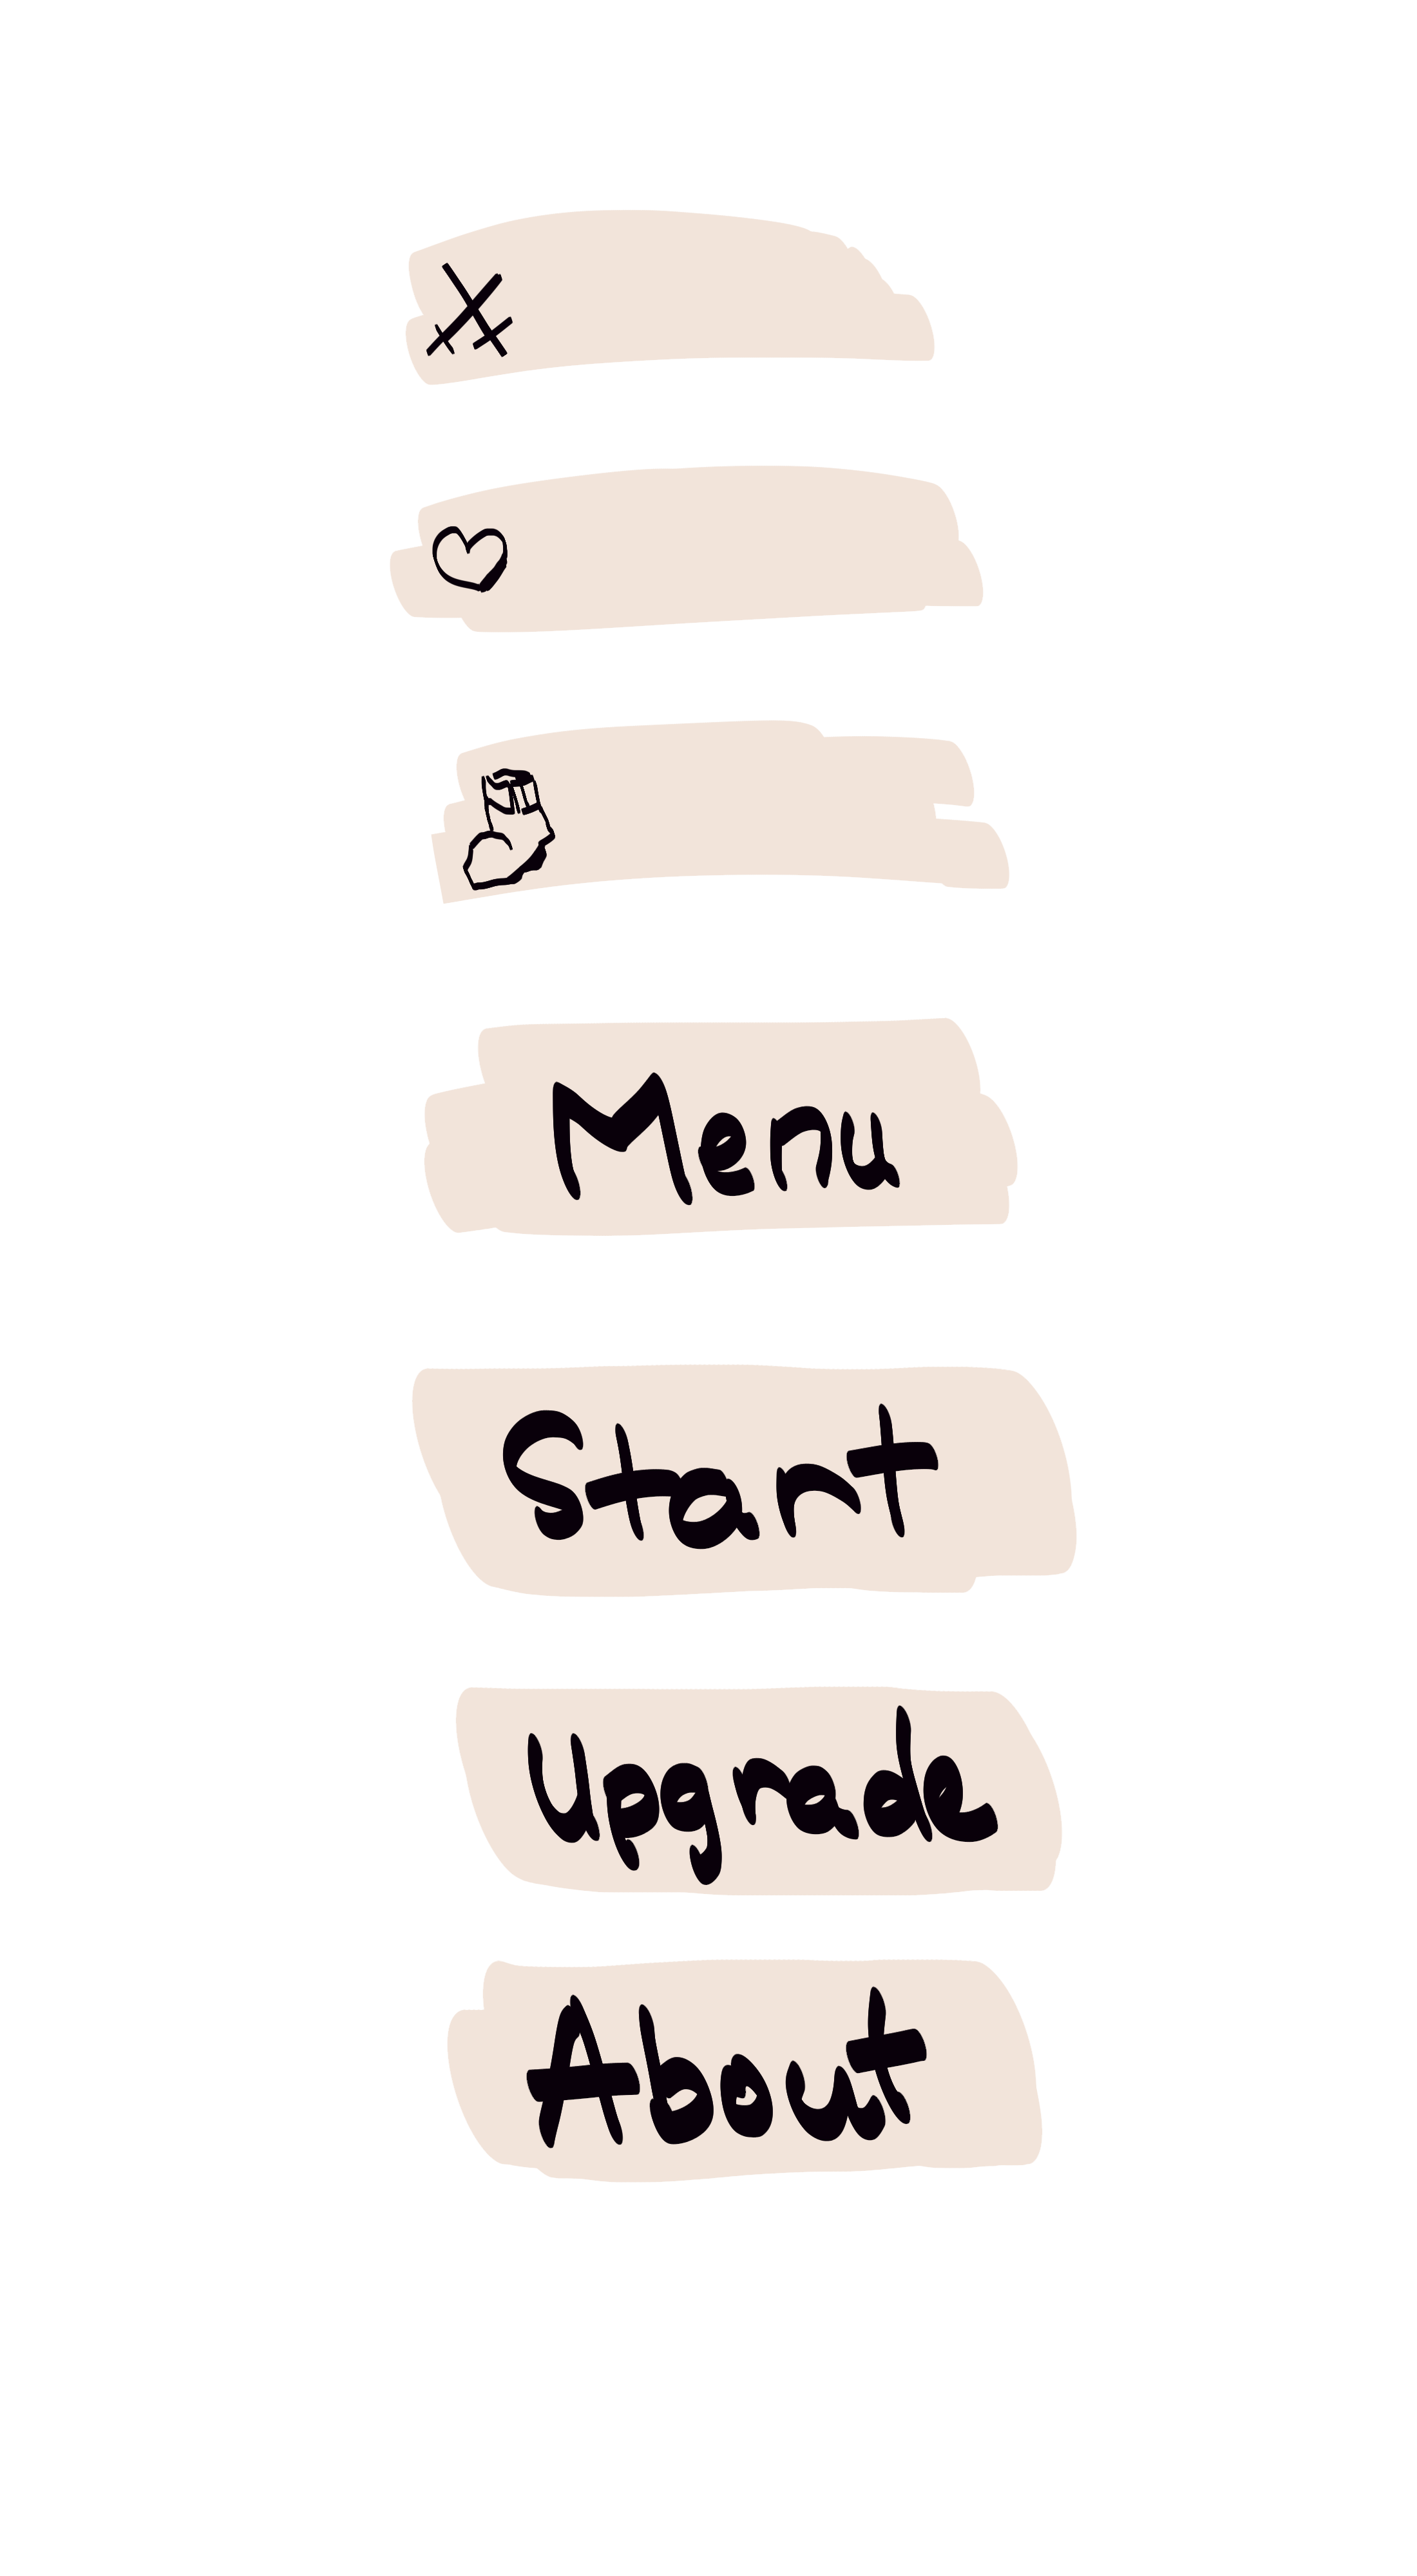 Menu
Start
Upgrade
About